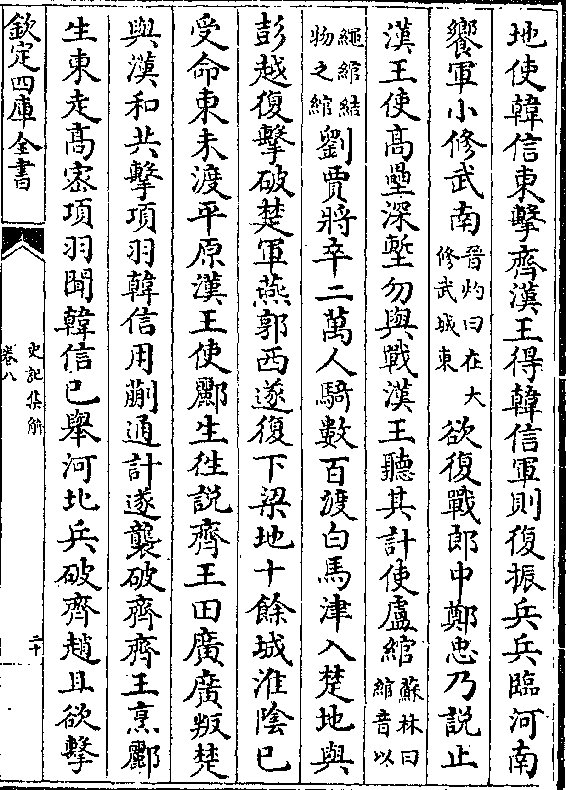 地使韓信東擊齊漢王得韓信軍則復振兵兵臨河南
饗軍小修武南晉灼曰在大修武城東欲復戰郎中鄭忠乃說止
漢王使高壘深塹勿與戰漢王聽其計使盧綰蘇林曰綰音以
繩綰結物之綰劉賈將卒二萬人騎數百渡白馬津入楚地與
彭越復擊破楚軍燕郭西遂復下梁地十餘城淮陰已
受命東未渡平原漢王使酈生徃說齊王田廣廣叛楚
與漢和共擊項羽韓信用蒯通計遂襲破齊齊王烹酈
生東走高宻項羽聞韓信已舉河北兵破齊趙且欲擊
欽定四庫全書
史記集解
卷八
二十